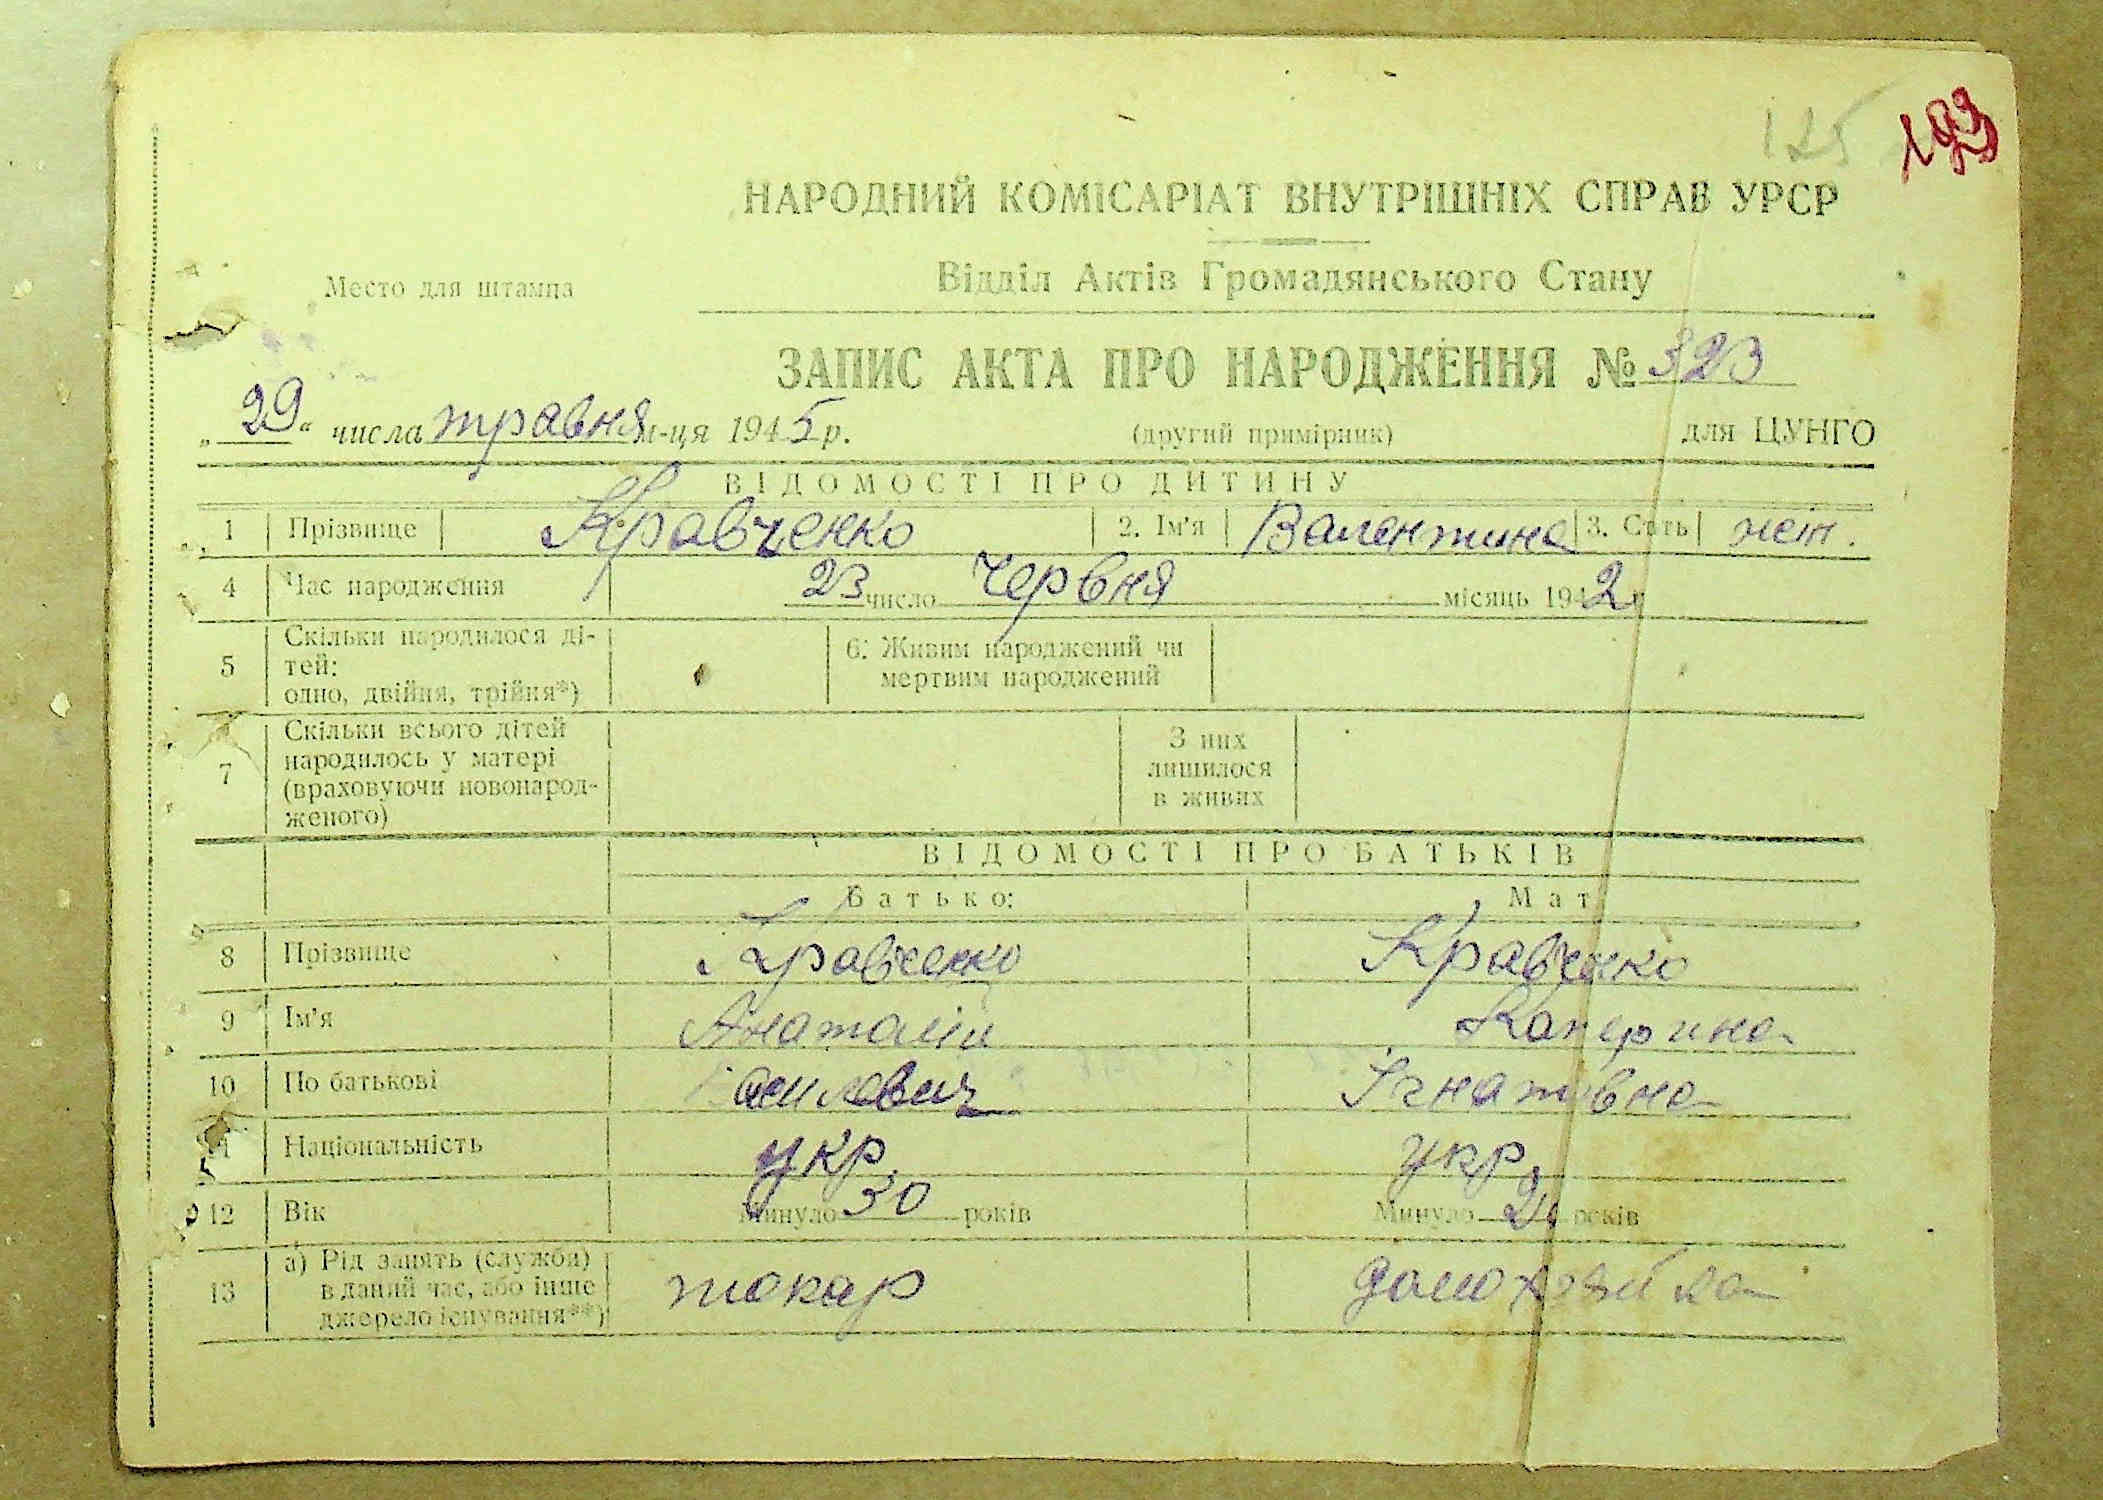 125
НАРОДНИЙ КОМІСАРІАТ ВНУТРІШНІХ СПРАВ УРСР
Відділ Актів Громадянського Стану
Место для штампа
ЗАПИС АКТА ПРО НАРОДЖЕННЯ № 323
„29“ числа травня м-ця 1945 р. (другий примірник) для ЦУНГО
ВІДОМОСТІ ПРО ДИТИНУ
1 Прізвище Кравченко 2. Ім'я Валентина 3. Стать жін.
4 Час народження 23 число червня місяць 1942 р
5 Скільки народилося ді-
тей:
одно, двійня, трійня*)
6. Живим народжений чи
мертвим народжений
7 Скільки всього дітей
народилось у матері
(враховуючи новонарод-
женого)
З них
лишилося
в живих
ВІДОМОСТІ ПРО БАТЬКІВ
Батько: Мат
8 Прізвище Кравченко Кравченко
9 Ім'я Анатолій Катерина
10 По батькові Василович Ігнатівна
11 Національність укр. укр.
12 Вік Минуло 30 років Минуло років
13 а) Рід занять (служби)
в даний час, або інше
джерело існування**)
токар домохозяйка